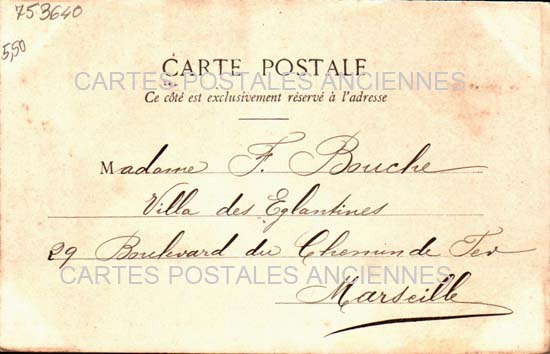 753640
5,50
CARTE POSTALE
CARTES POSTALES ANCIENNES
Ce côté est exclusivement réservé à l'adresse
Madame F. Bouche
Villa des Eglantines
29 Boulevard du Chemin de Fer
CARTES POSTALES ANCIENNES
Marseille